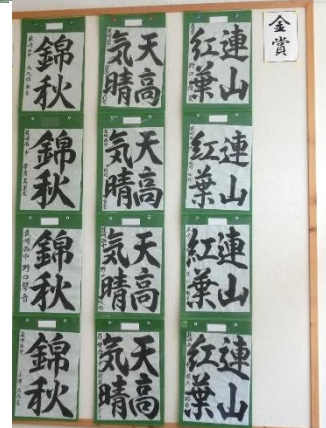 金賞
連山
紅葉
天高
気晴
錦秋
連山
紅葉
天高
気晴
錦秋
連山
紅葉
天高
気晴
錦秋
連山
紅葉
天高
気晴
錦秋